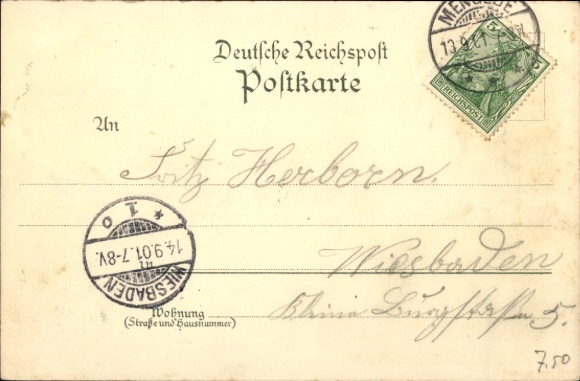 MENGEDE
13.9.01
5 5
REICHSPOST
Deutsche Reichspost
Postkarte
An
Fritz Herborn.
Wiesbaden
Kleine Burgstraße 5.
WIESBADEN
14.9.01.7-8V.
1.
Wohnung
(Straße und Hausnummer)
7.50